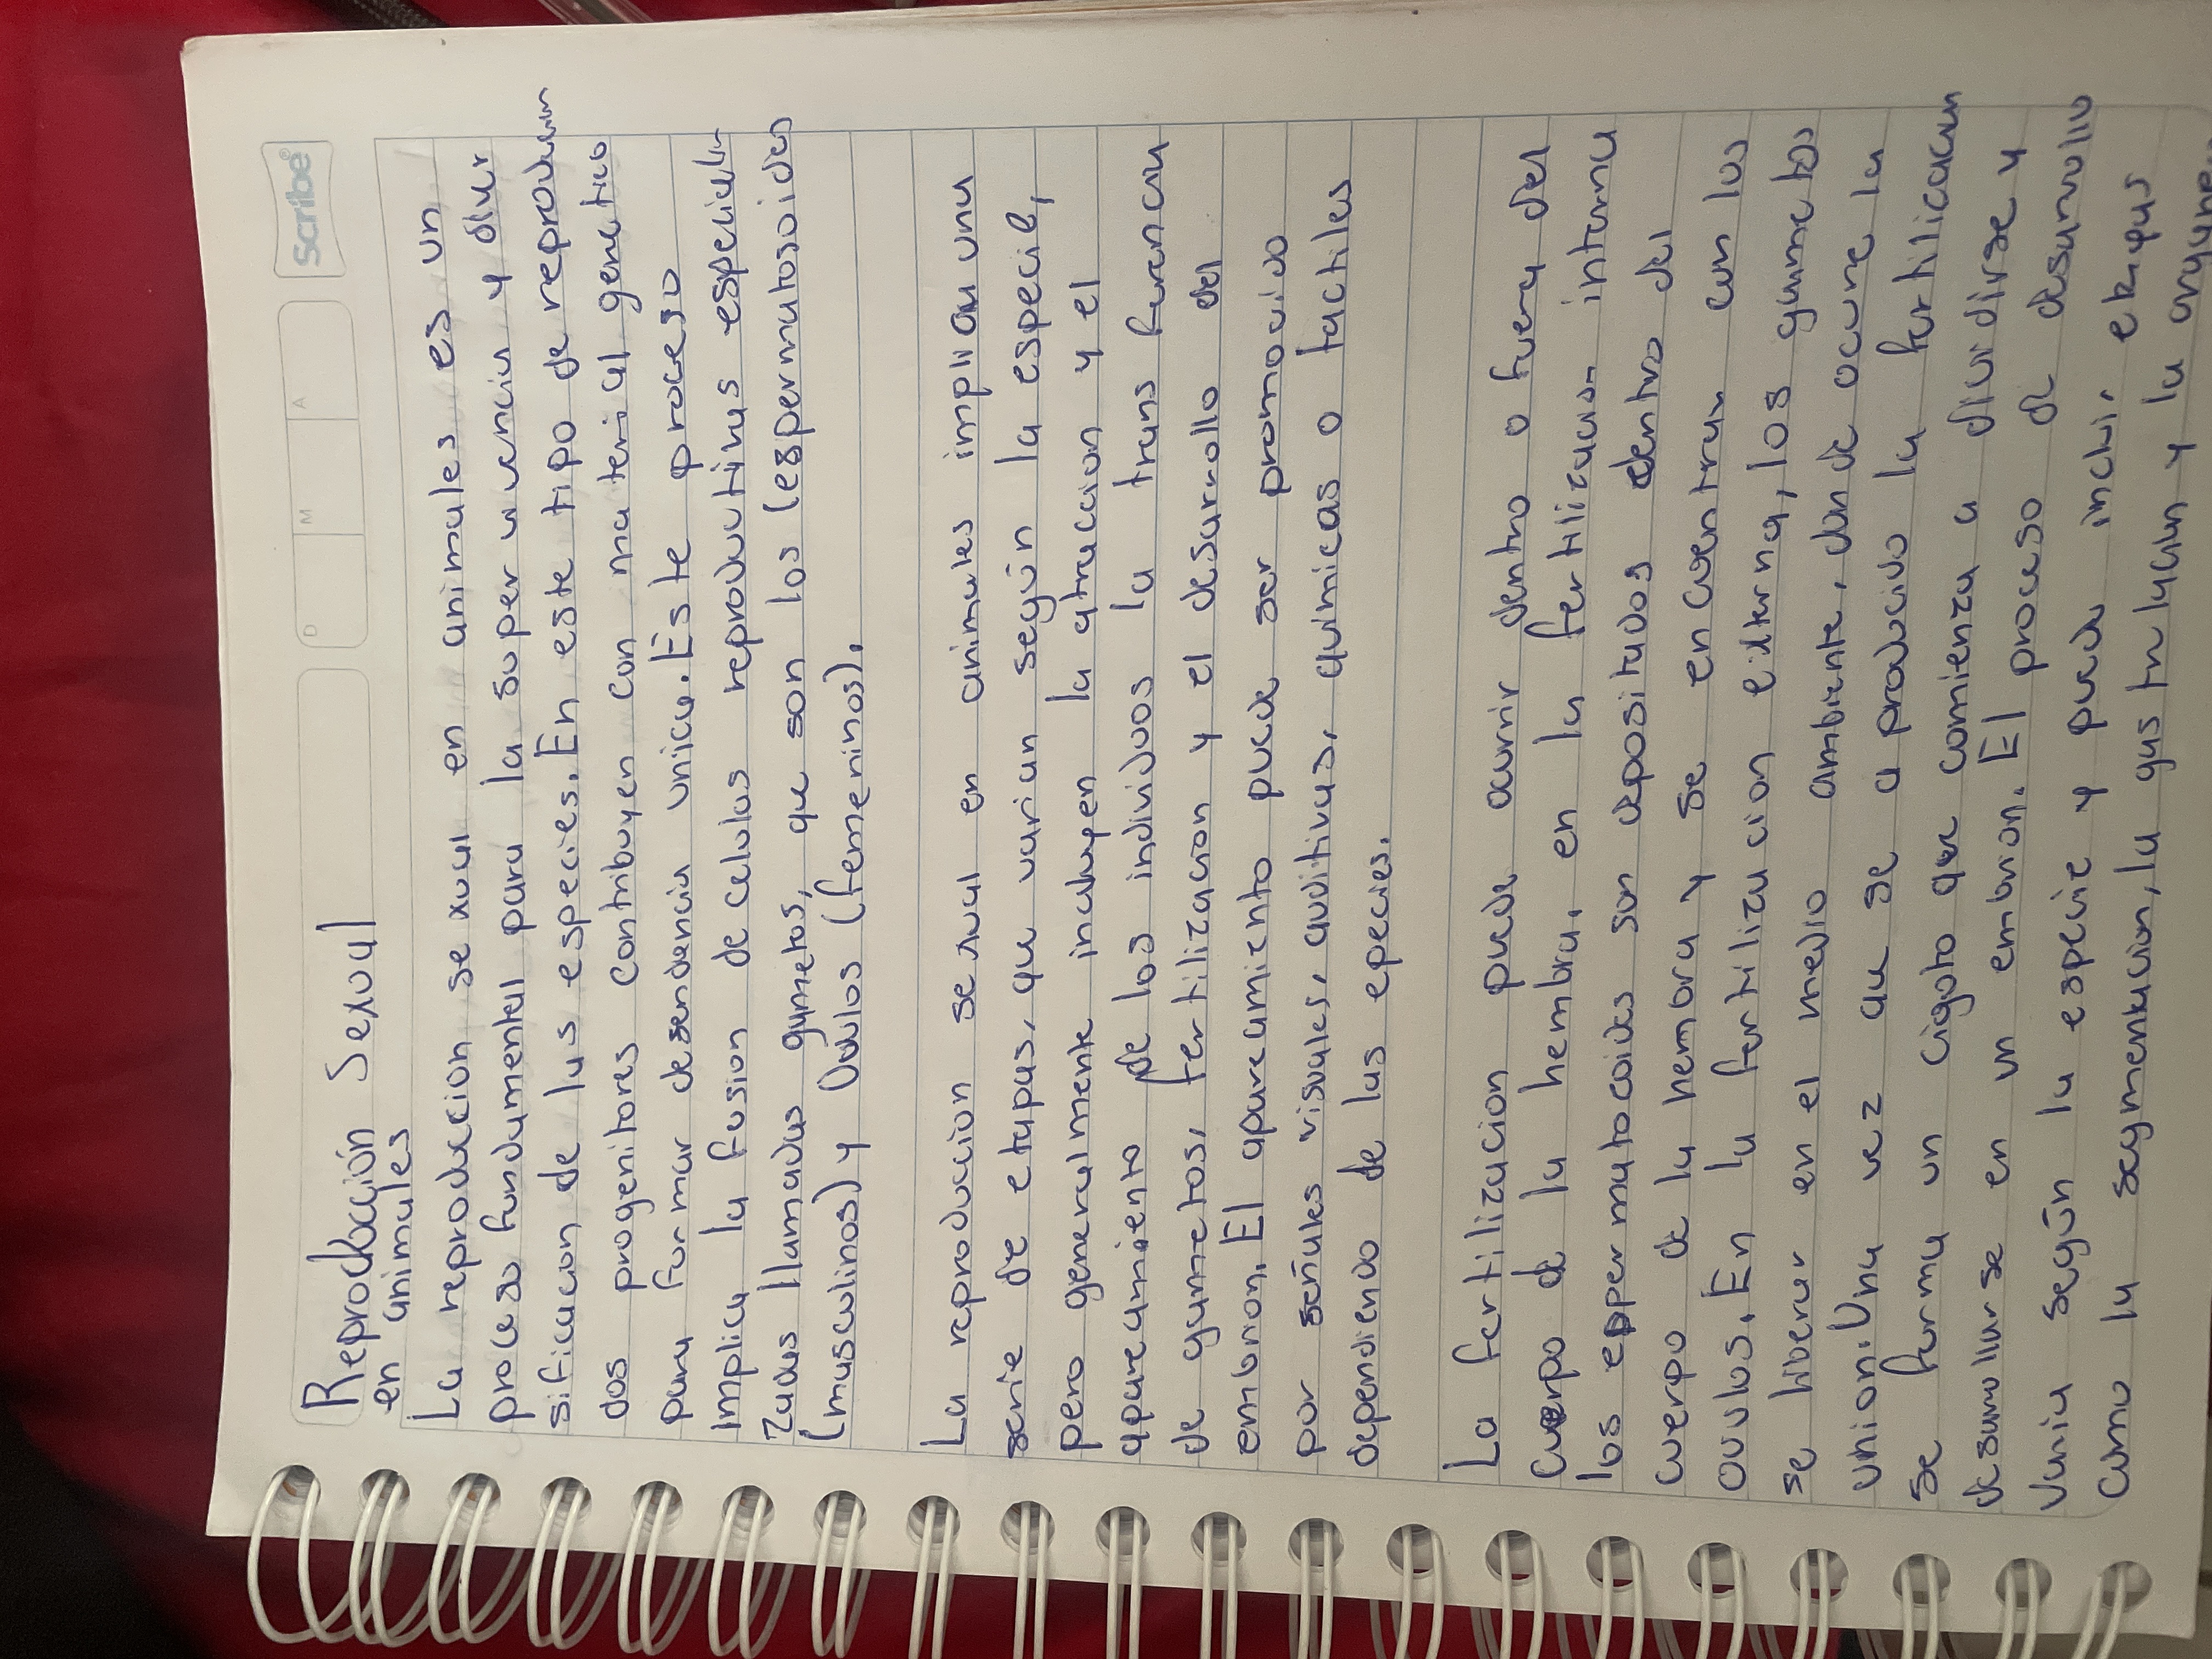 Scribe®
D M A
Reproducción Sexual
en animales
La reproducion sexual en animales es un
proceso fundamental para la supervivencia y diver
sificacion de las especies. En este tipo de reproduccion
dos progenitores contribuyen con material genetico
para formar desendencia unica. Este proceso
implica la fusion de celulas reproductivas especiali-
zadas llamadas gametos, que son los (espermatosoides
(masculinos) y Ovulos (femeninos).
La reproduccion sexual en animales implican una
serie de etapas, que varian según la especie,
pero generalmente incluyen la atraccion y el
apareamiento de los individuos la transferencia
de gametos, fertilizacion y el desarrollo del
embrion. El apareamiento puede ser promovido
por señales visuales, auditivas, quimicas o tactiles
dependiendo de las epecies.
La fertilizacion puede ocurrir dentro o fuera del
cuerpo de la hembra, en la fertilizacion interna
los eppermatocoides son depositados dentro del
cuerpo de la hembra y se encuentran con los
ovulos. En la fertilizacion externa, los gametos
se liberar en el medio ambiente, donde ocurre la
union. Una vez que se a producido la fertilicacion
se forma un cigoto que comienza a dividirse y
desarrollarse en un embrion. El proceso de desarrollo
varia según la especie y puede incluir etapas
como la segmentacion, la gastrulacion y la